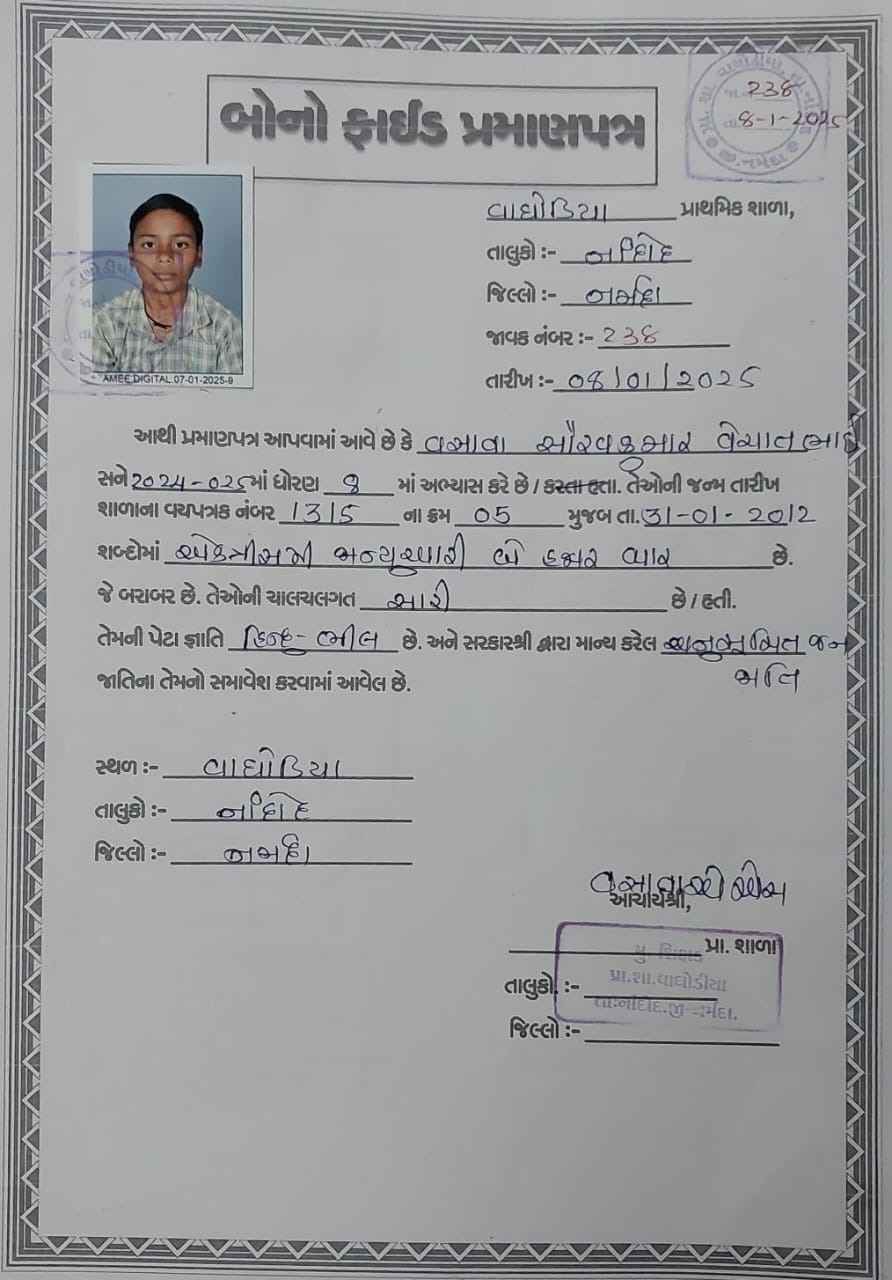 બોનો ફાઈડ પ્રમાણપત્ર
238
8-1-2025
વાઘોડિયા પ્રાથમિક શાળા,
તાલુકો :- નાંદોદ
જિલ્લો :- નર્મદા
જાવક નંબર :- 238
તારીખ :- 08/01/2025
AMEE DIGITAL 07-01-2025-9
આથી પ્રમાણપત્ર આપવામાં આવે છે કે વસાવા સૌરવકુમાર વેચાતભાઈ
સને 2024-025માં ધોરણ 8 માં અભ્યાસ કરે છે / કરતા હતા. તેઓની જન્મ તારીખ
શાળાના વયપત્રક નંબર 1315 ના ક્રમ 05 મુજબ તા. 31-01-2012
શબ્દોમાં એકત્રીસમી જાન્યુઆરી બે હજાર બાર છે.
જે બરાબર છે. તેઓની ચાલચલગત સારી છે / હતી.
તેમની પેટા જ્ઞાતિ હિન્દુ-ભીલ છે. અને સરકારશ્રી દ્વારા માન્ય કરેલ અનુસૂચિત જન
જાતિ
જાતિના તેમનો સમાવેશ કરવામાં આવેલ છે.
સ્થળ :- વાઘોડિયા
તાલુકો :- નાંદોદ
જિલ્લો :- નર્મદા
આચાર્યશ્રી,
પ્રા. શાળા
મુ. શિક્ષક
તાલુકો :-
પ્રા.શા.વાઘોડીયા
તા.નાંદોદ.જી.નર્મદા.
જિલ્લો :-